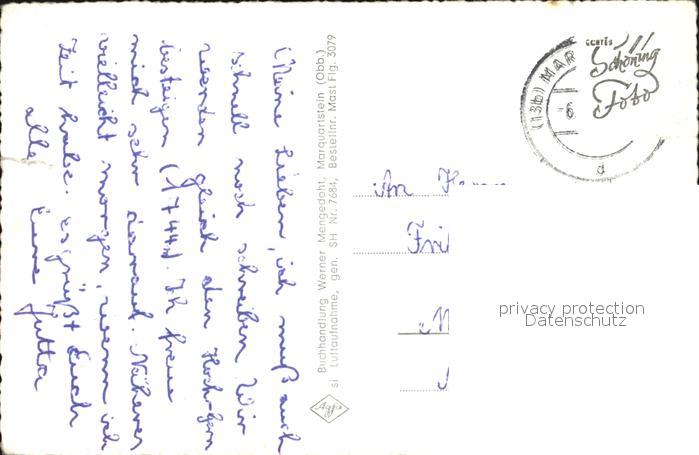 Meine Lieben, ich muß auch
schnell noch schreiben. Wir
werden gleich den Hoch-gern
besteigen (1744). Ich freue
mich sehr darauf. Näheres
vielleicht morgen, wenn ich
Zeit habe. es grüßt Euch
alle Eure Jutta
Buchhandlung Werner Mengedoht, Marquartstein (Obb.)
si Luftaufnahme, gen. SH Nr. 7684, Bestellnr. Mast Flg. 3079
Agfa
(13b) MAR
6.
d
ECHTES
Schöning
Foto
An
privacy protection
Datenschutz